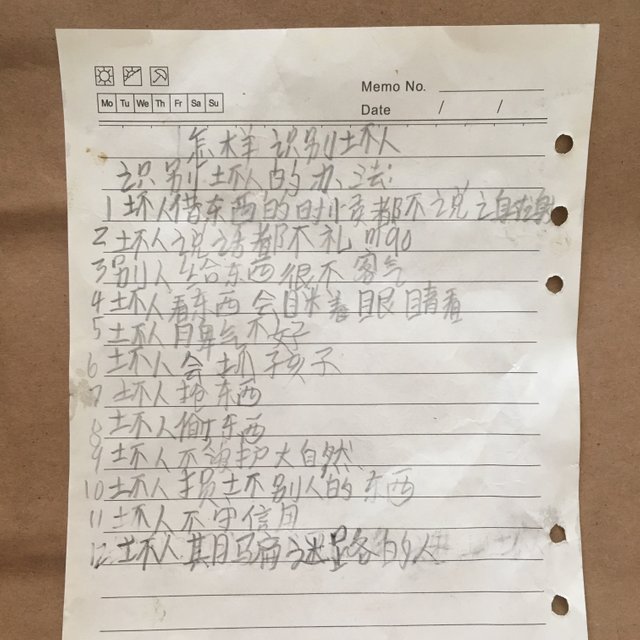 Memo No.
Mo Tu We Th Fr Sa Su
Date / /
怎样识别坏人
识别坏人的办法:
1 坏人借东西的时候都不说
2 坏人说话都不礼mao
3 别人给东西很不客气
4 坏人看东西会眯着眼睛看
5 坏人脾气不好
6 坏人会坏孩子
7 坏人抢东西
8 坏人偷东西
9 坏人不爱护大自然
10 坏人损坏别人的东西
11 坏人不守信用
12 坏人 的人